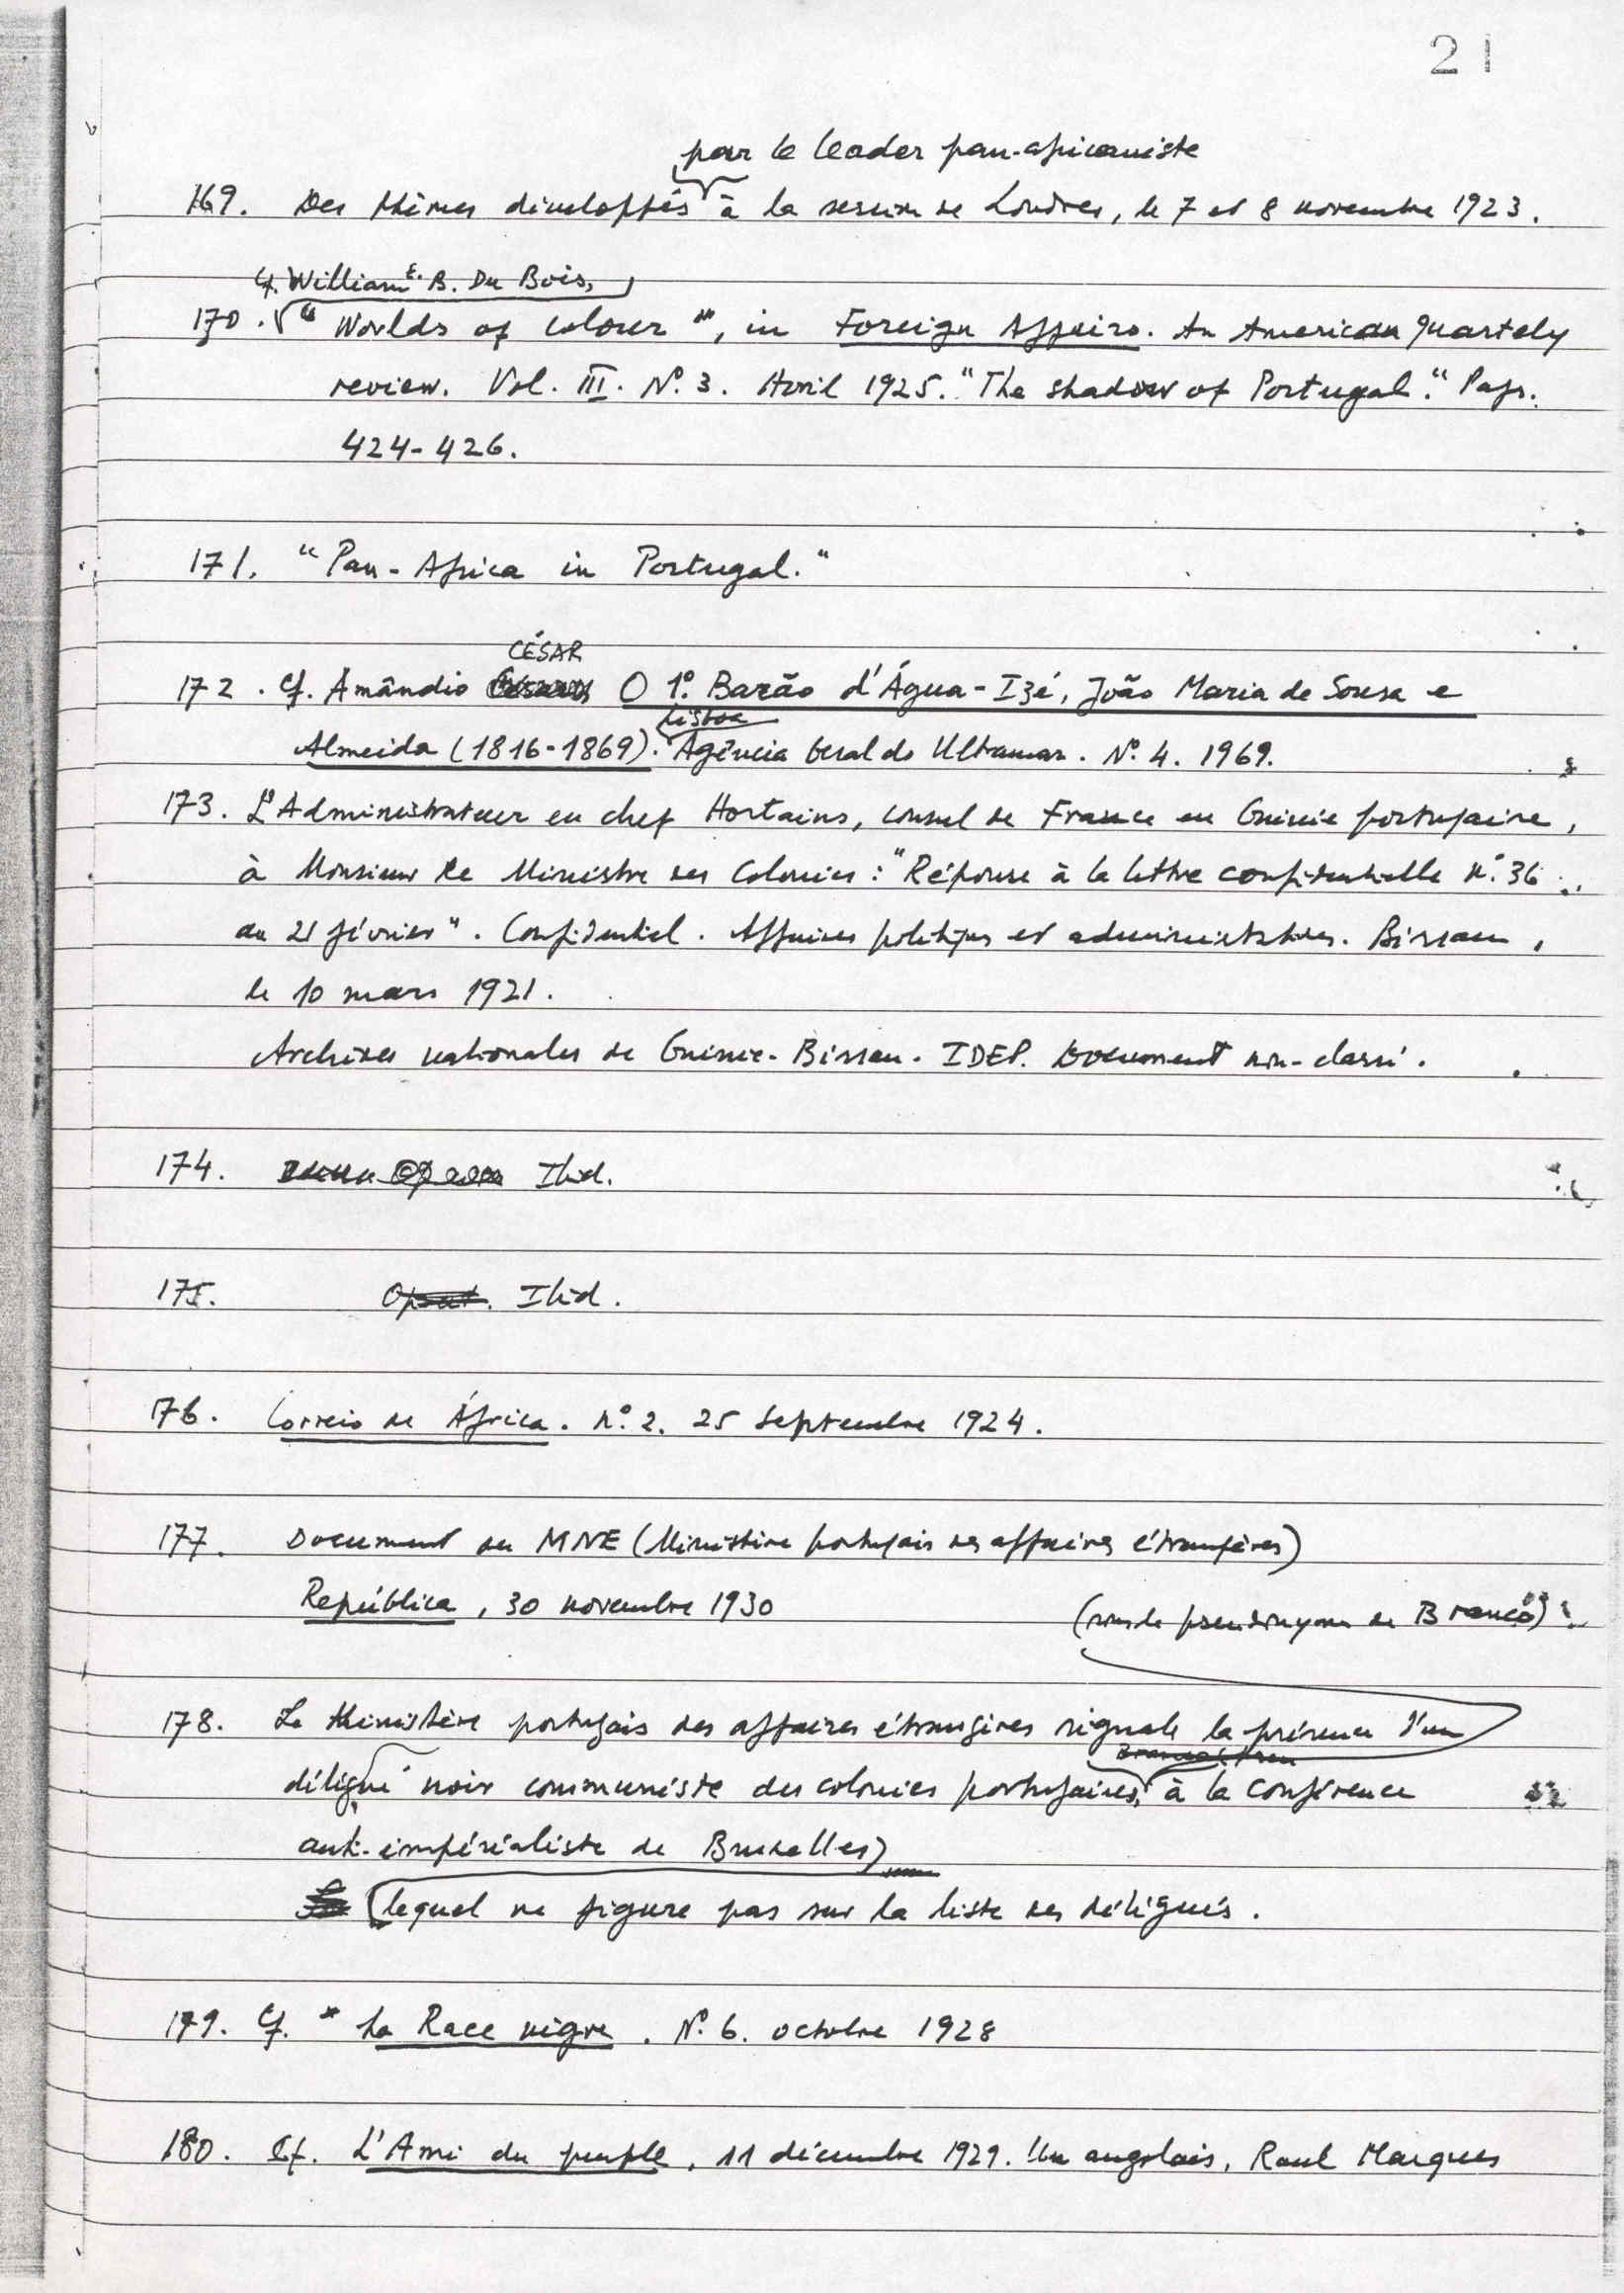 21
par le leader pan-africaniste
169. Des thèmes développés à la session de Londres, le 7 et 8 novembre 1923.
Cf. William E. B. Du Bois,
170. " Worlds of colour ", in Foreign Affairs. An American quartely
review. Vol. III. Nº 3. Avril 1925. "The shadow of Portugal". Pags.
424-426.
171. "Pan-Africa in Portugal."
CÉSAR
172. Cf. Amândio O 1º. Barão d'Água-Izé, João Maria de Sousa e
Lisboa
Almeida (1816-1869). Agência Geral do Ultramar. Nº 4. 1969.
173. L'Administrateur en chef Hortains, consul de France en Guinée portugaise,
à Monsieur le Ministre des Colonies : "Réponse à la lettre confidentielle nº 36
du 21 février". Confidentiel. Affaires politiques et administratives. Bissau,
le 10 mars 1921.
Archives nationales de Guinée-Bissau. IDEP. Document non-classé.
174. Ibid.
175. Op. cit. Ibid.
176. Correio de África. Nº 2. 25 Septembre 1924.
177. Document du MNE (Ministère portugais des affaires étrangères)
República, 30 novembre 1930
(sous le pseudonyme de Branco)
178. Le Ministère portugais des affaires étrangères signale la présence d'un
délégué noir communiste des colonies portugaises, à la Conférence
anti-impérialiste de Bruxelles)
lequel ne figure pas sur la liste des délégués.
179. Cf. La Race nègre. Nº 6. octobre 1928
180. Cf. L'Ami du peuple, 11 décembre 1929. Un angolais, Raul Marques